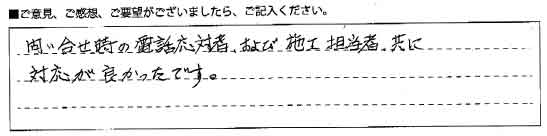 ■ご意見、ご感想、ご要望がございましたら、ご記入ください。
問い合せ時の電話応対者、および施工担当者、共に
対応が良かったです。